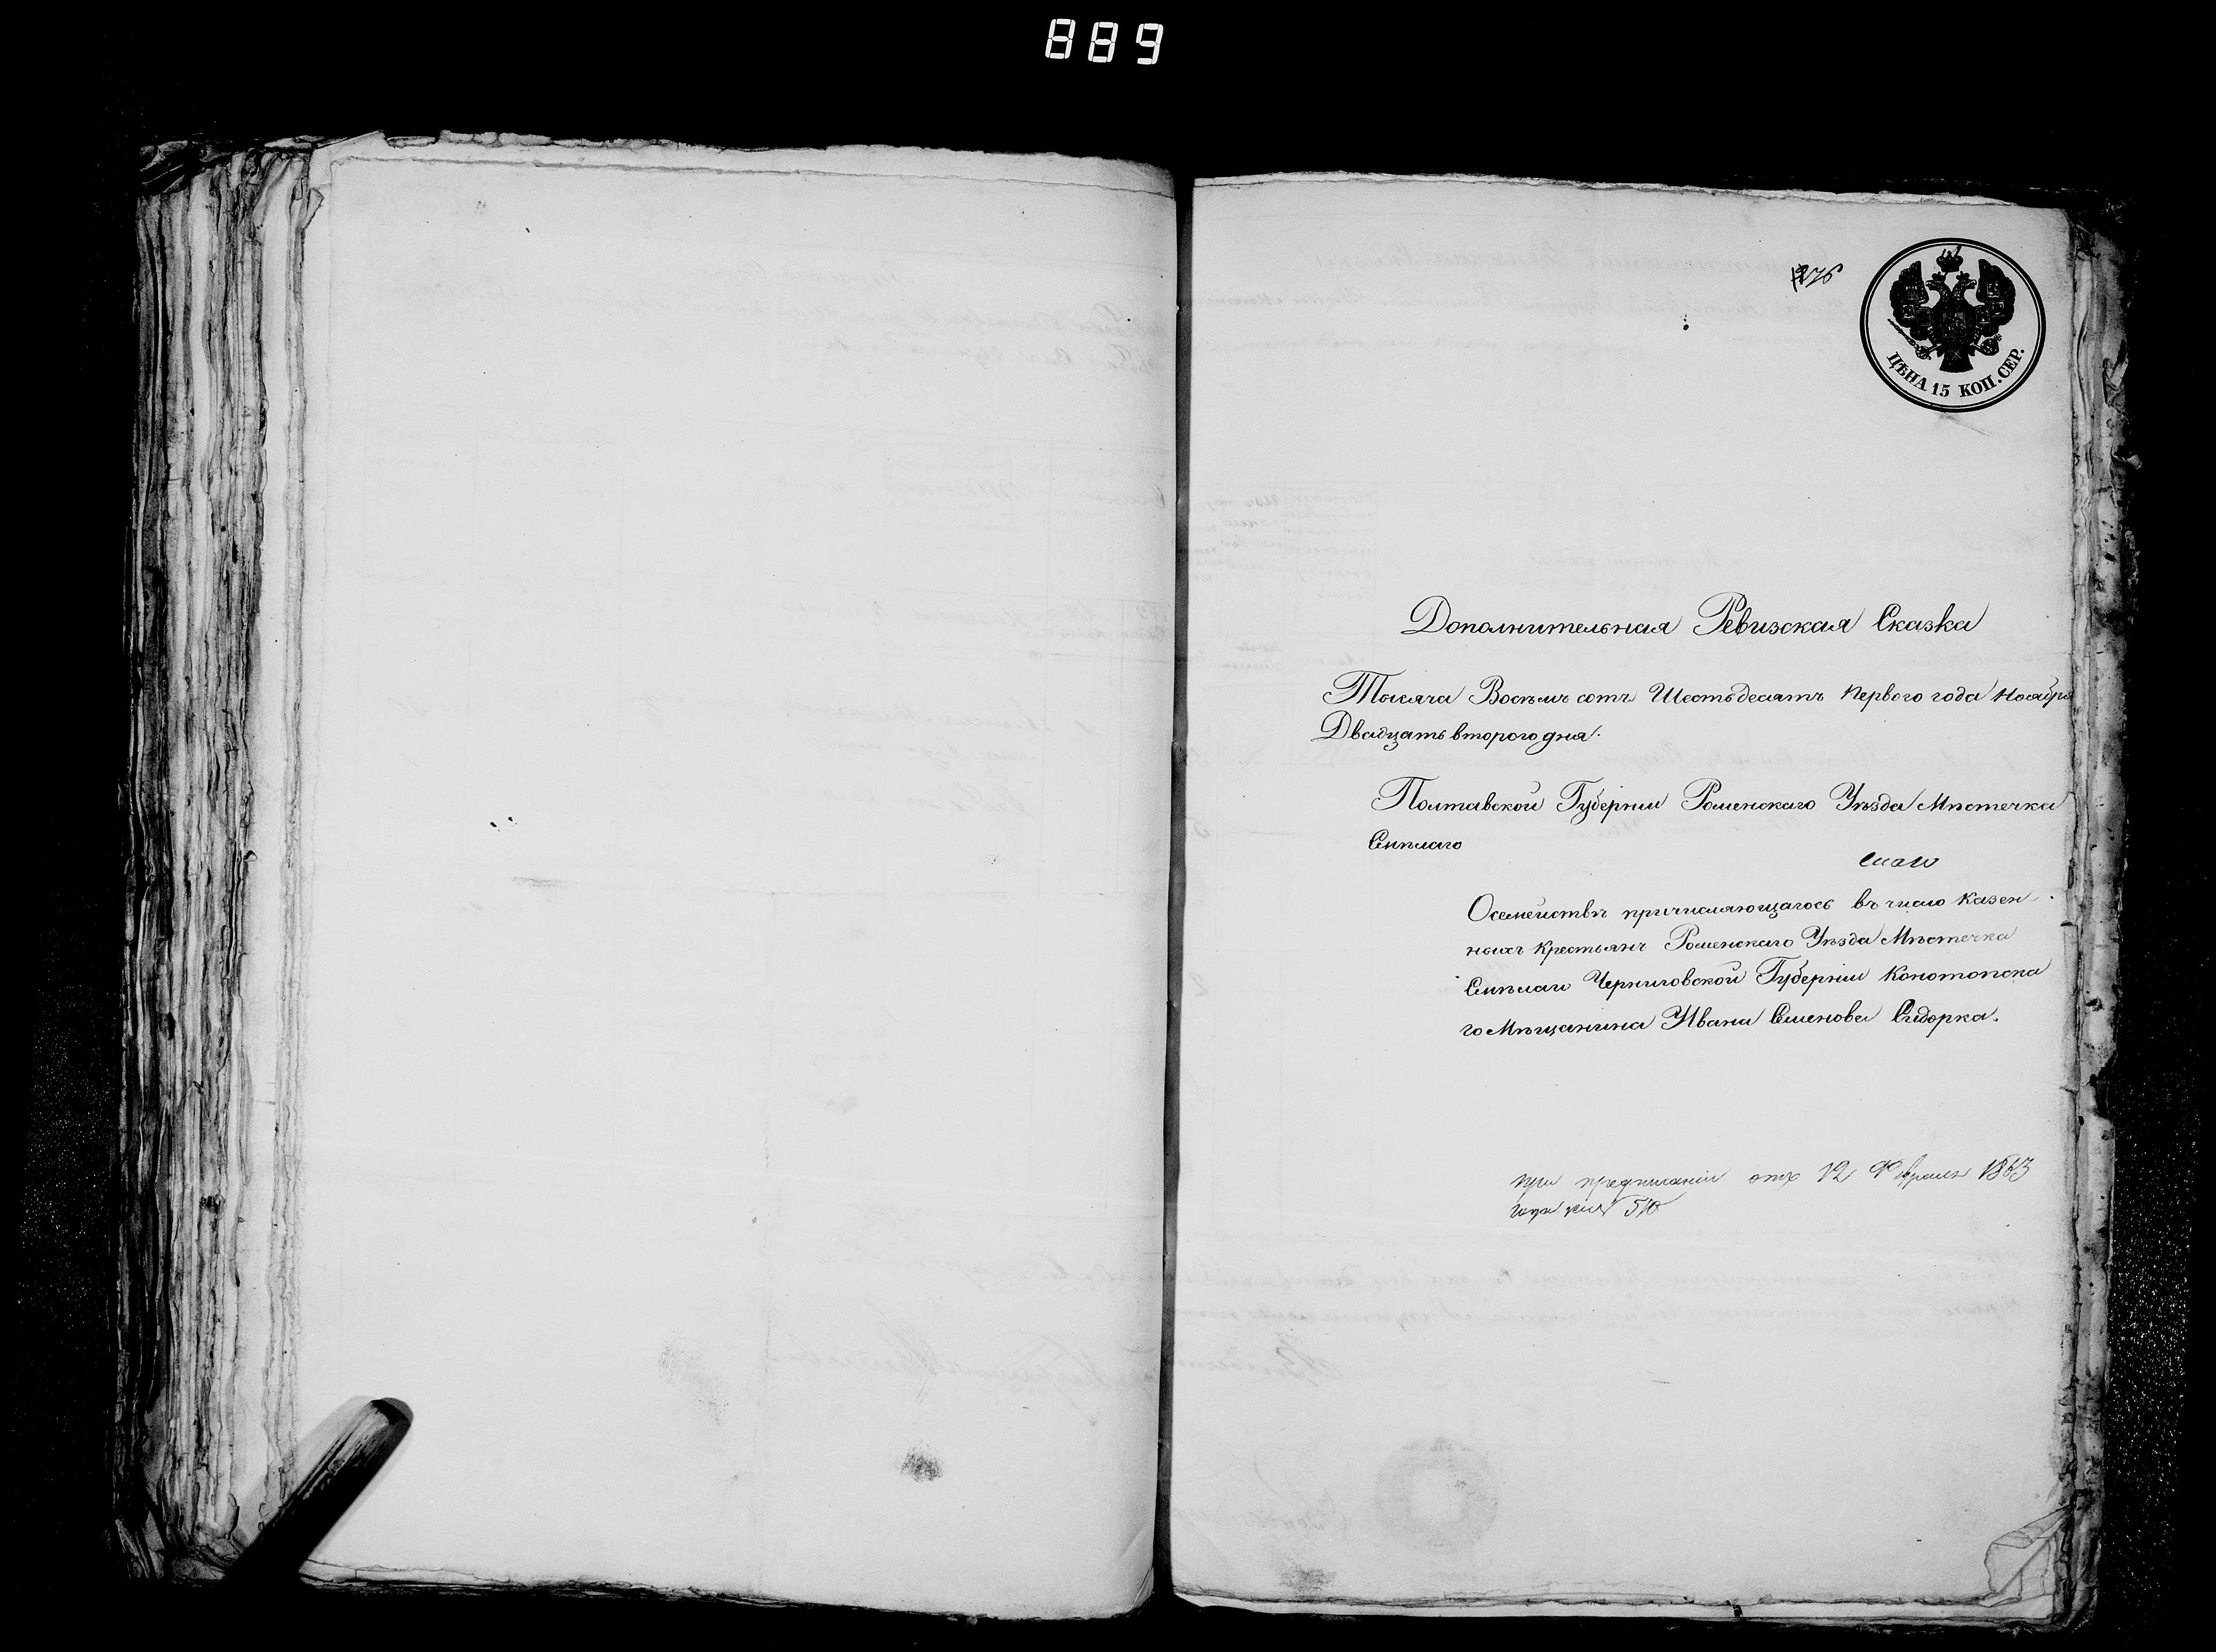 889
1276
ЦѢНА 15 КОП. СЕР.
Дополнительная Ревизская Сказка
Тысяча Восѣмъ сотъ Шестьдесятъ первого года Ноября
Двадцать второго дня.
Полтавской Губерніи Роменскаго Уѣзда Мѣстечка
Смѣлаго
О семействѣ причисляющагось въ число казен-
ныхъ крестьянъ Роменскаго Уѣзда Мѣстечка
Смѣлаго Черниговской Губерніи Конотопска
го Мѣщанина Ивана Семенова Сидорка.
при предписаніи отъ 12 Февраля 1863
года за № 510